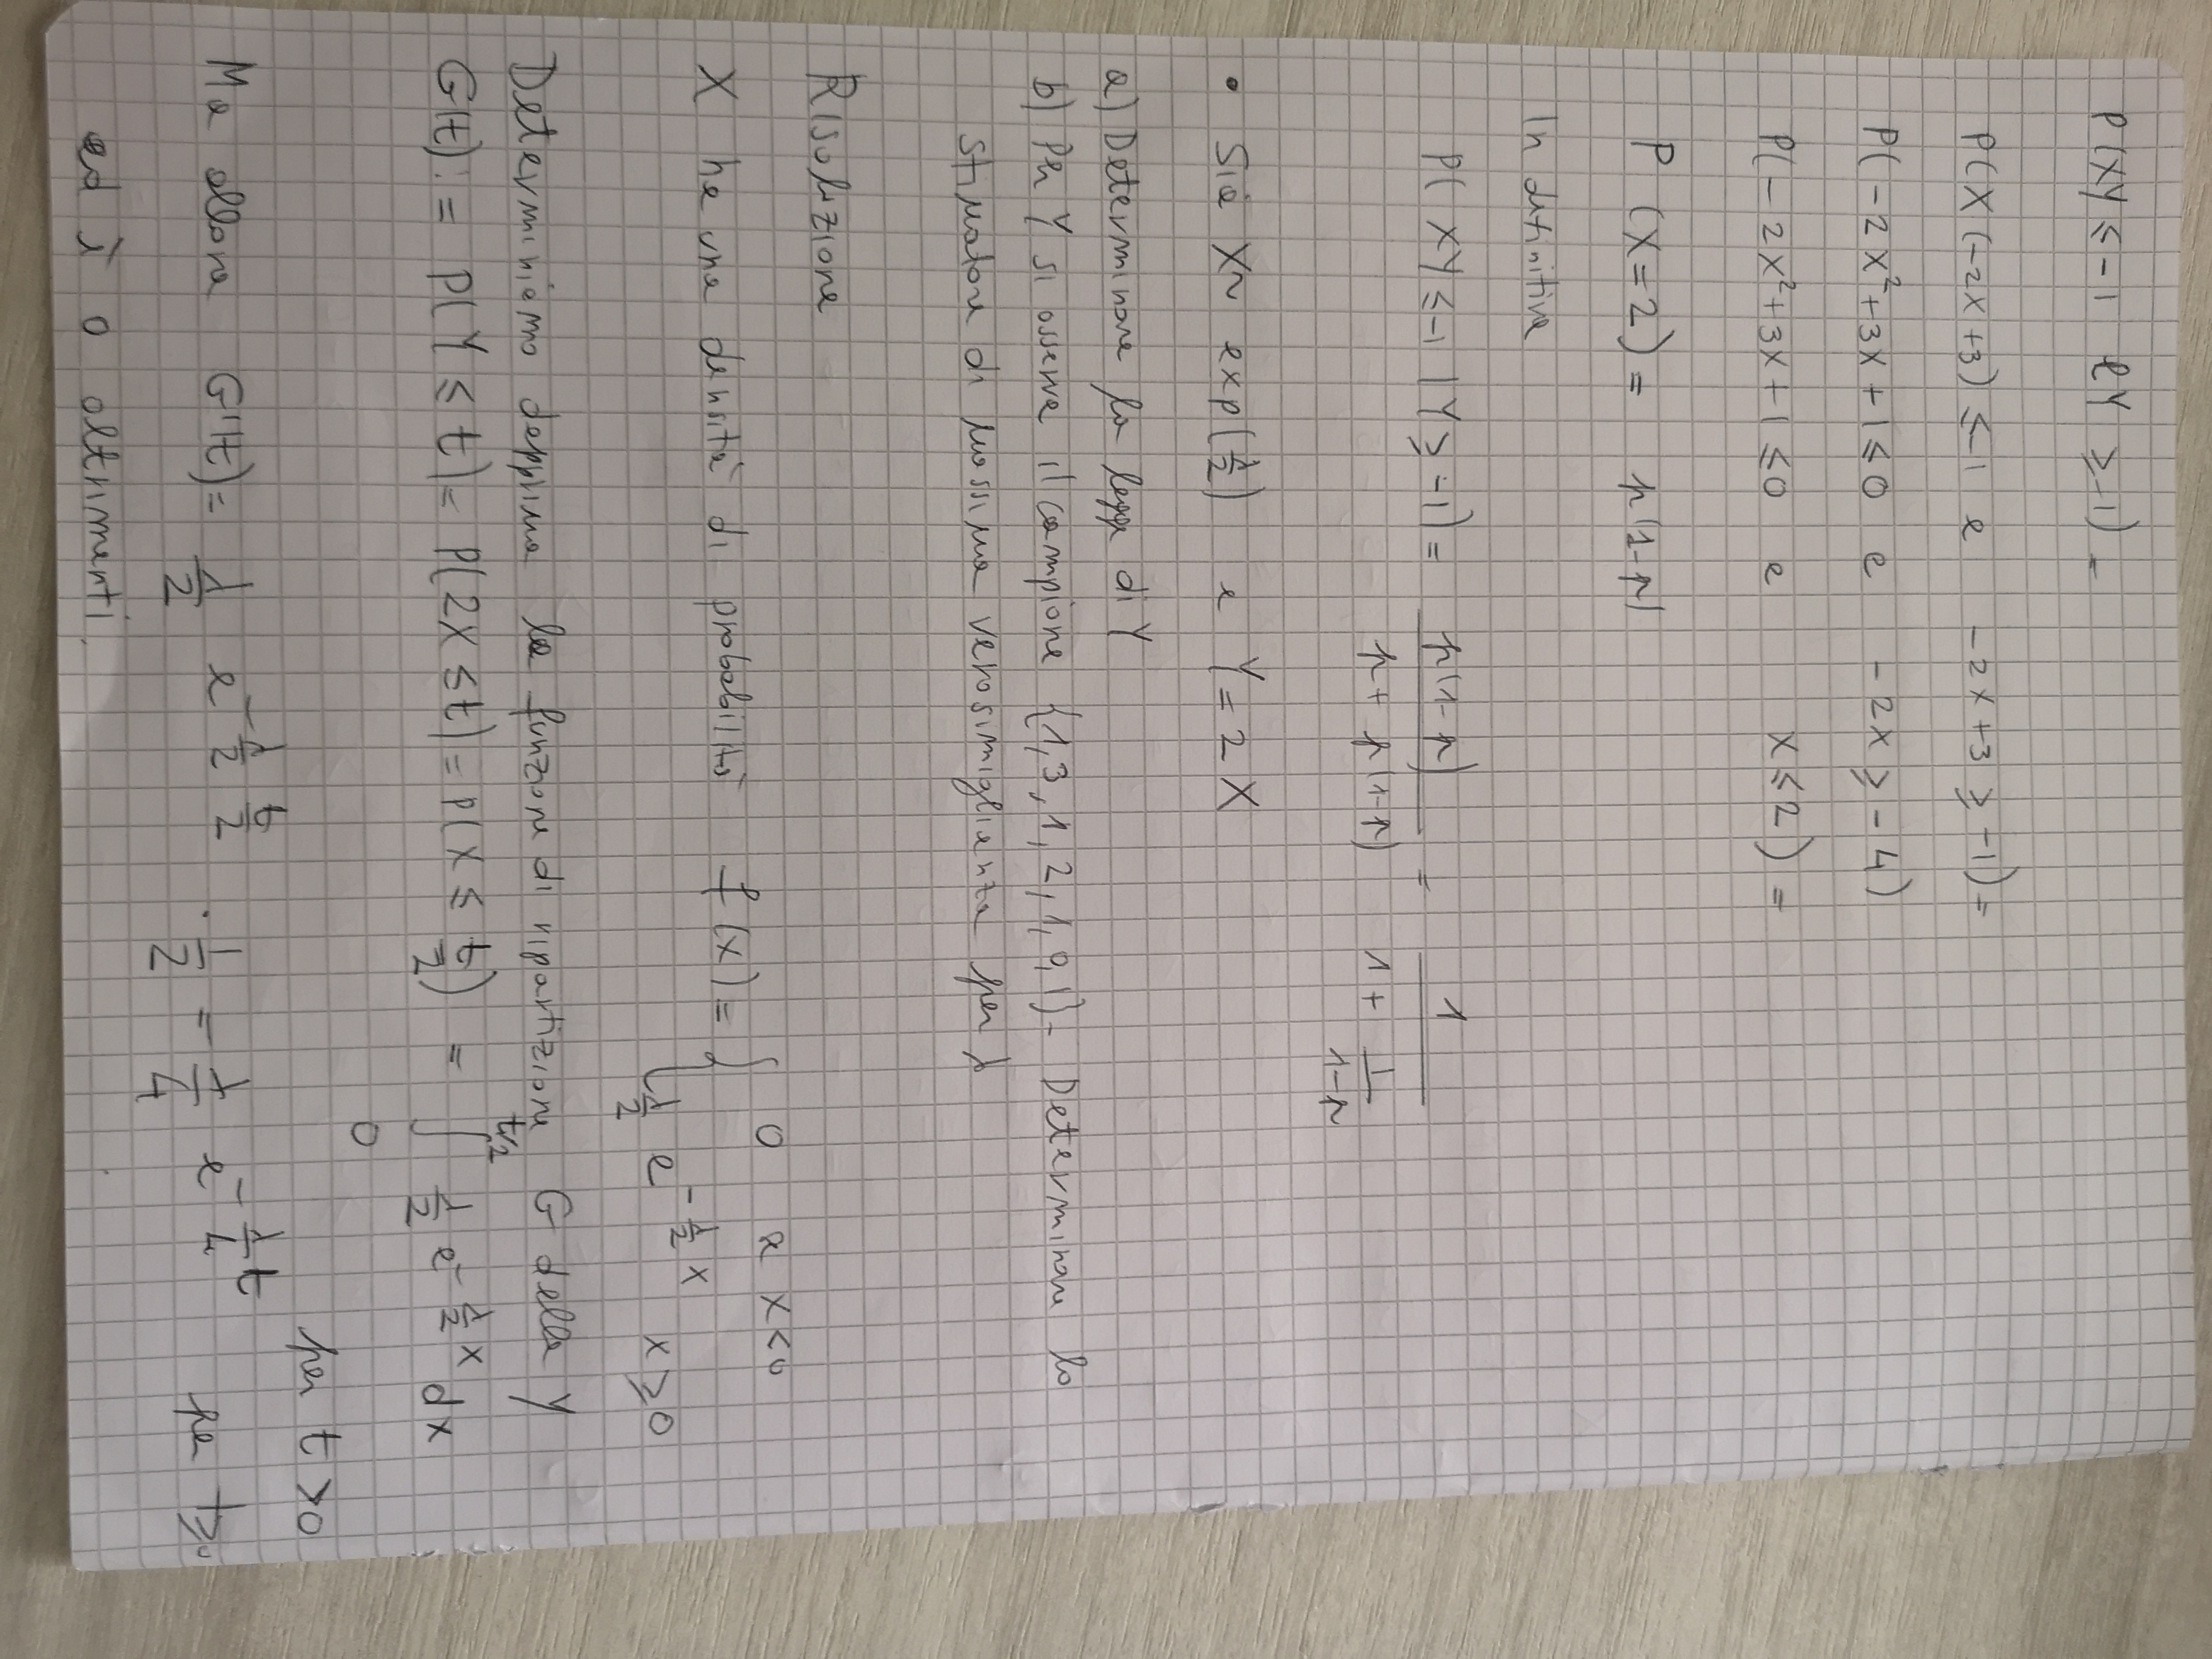 P(XY ≤ -1 e Y ≥ -1) =
P(X(-2X+3) ≤ -1 e -2X+3 ≥ -1) =
P(-2X²+3X+1 ≤ 0 e -2X ≥ -4)
P(-2X²+3X+1 ≤ 0 e X ≤ 2) =
P(X=2) = p(1-p)
In definitiva
P(XY ≤ -1 | Y ≥ -1) = p(1-p) / (p + p(1-p)) = 1 / (1 + 1/(1-p))
• Sia X ~ exp(λ/2) e Y = 2X
a) Determinare la legge di Y
b) Per Y si osserva il campione {1,3,1,2,1,0,1}. Determinare lo
stimatore di massima verosimiglianza per λ
Risoluzione
X ha una densità di probabilità f(x) = { 0 se x<0
λ/2 e^(-λ/2 x) x ≥ 0
Determiniamo dapprima la funzione di ripartizione G della Y
G(t) := P(Y ≤ t) = P(2X ≤ t) = P(X ≤ t/2) = ∫_0^(t/2) λ/2 e^(-λ/2 x) dx
per t > 0
Ma allora G'(t) = λ/2 e^(-λ/2 t/2) · 1/2 = λ/4 e^(-λ/4 t) per t ≥ 0
ed è 0 altrimenti.